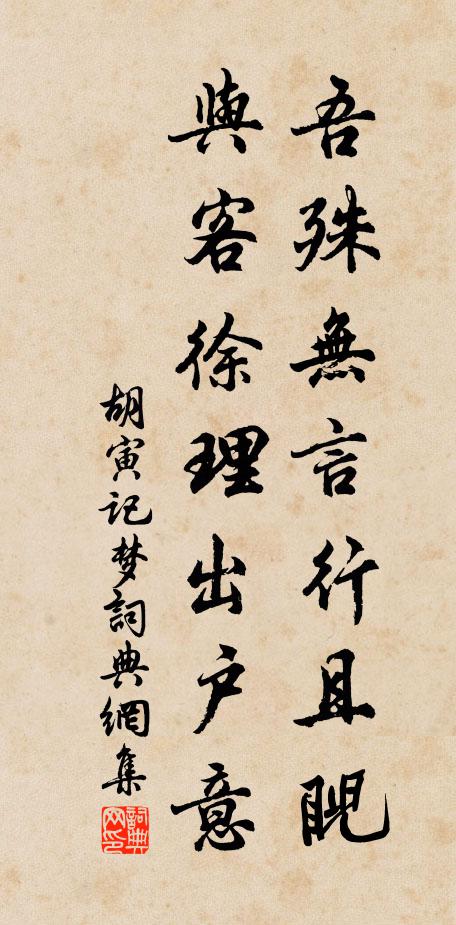 吾殊無言行且睨
與客徐理出户意
胡寅记梦詞典網集
詞典网印